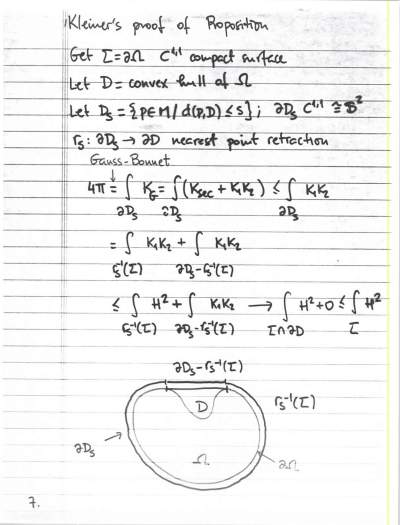 Kleiner's proof of Proposition
Get Σ=∂Ω C^{1,1} compact surface
Let D = convex hull of Ω
Let D_s = {p∈M / d(p,D) ≤ s} ; ∂D_s C^{1,1} ≅ S^2
r_s : ∂D_s → ∂D nearest point retraction
Gauss-Bonnet
↓
4π = ∫_{∂D_s} K_G = ∫_{∂D_s} (K_sec + K_1K_2) ≤ ∫_{∂D_s} K_1K_2
= ∫_{r_s^{-1}(Σ)} K_1K_2 + ∫_{∂D_s - r_s^{-1}(Σ)} K_1K_2
≤ ∫_{r_s^{-1}(Σ)} H^2 + ∫_{∂D_s - r_s^{-1}(Σ)} K_1K_2 → ∫_{Σ∩∂D} H^2 + 0 ≤ ∫_Σ H^2
∂D_s - r_s^{-1}(Σ)
D
r_s^{-1}(Σ)
∂D_s
Ω
∂Ω
7.